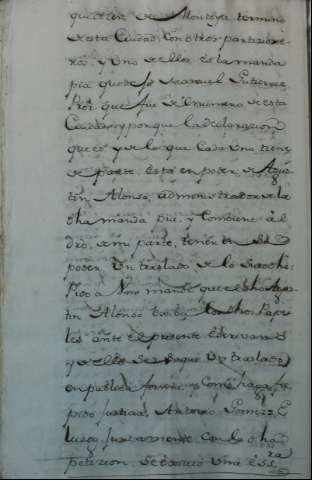 que tiene de Montoya termino
desta Ciudad, Con otros partizione
ros, y Uno dellos, es la manda
pia que dejo Manuel Gutierrez
Pror que fue de Numero de esta
Ciudad, y porque la declarazion
que es, y de lo que Cada Uno, tiene
de parte, está en poder de Agus
tin Alonso, administrador de la
dha manda pia; y Combiene al
dro, de mi parte, tener en su
poder Un traslado de lo
Pido a Vmd mande que el dho Agus
tin Alonso Exsiba los dhos Pape
les ante el presente Escrivano
y dellos se saque Un traslado
en publica forma, Como haga fe,
pido justicia, Antonio Gomez, E
luego juntamente Con la dha
petizion, se Exsivio Una ess.ra